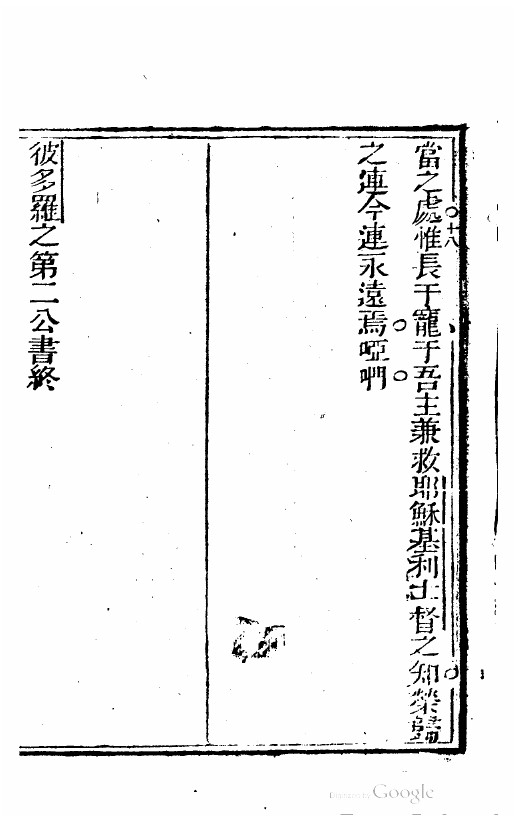 當之處。十八惟長于寵、于吾主兼救耶穌基利士督之知。榮歸
之連今連永遠焉。啞們。
彼多羅之第二公書終
Digitized by Google